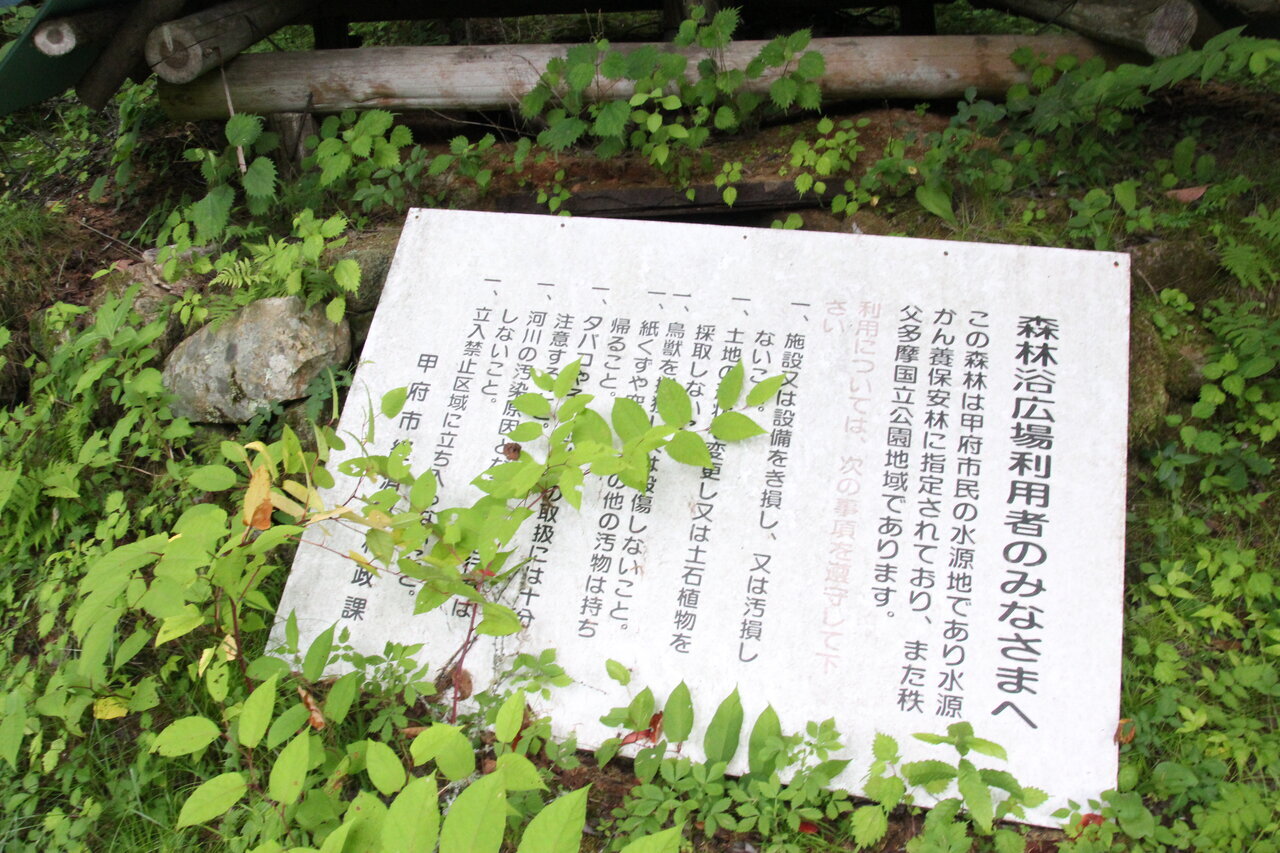 森林浴広場利用者のみなさまへ
この森林は甲府市民の水源地であり水源
かん養保安林に指定されており、また秩
父多摩国立公園地域であります。
利用については、次の事項を遵守して下
さい
一、施設又は設備をき損し、又は汚損し
ないこと。
一、土地の 変更し又は土石植物を
採取しない
一、鳥獣を は殺傷しないこと。
一、紙くずや空 の他の汚物は持ち
帰ること。
一、タバコや の取扱には十分
注意する こと。
一、河川の汚染原因とな は
しないこと。
一、立入禁止区域に立ち入らな と。
甲府市 政課